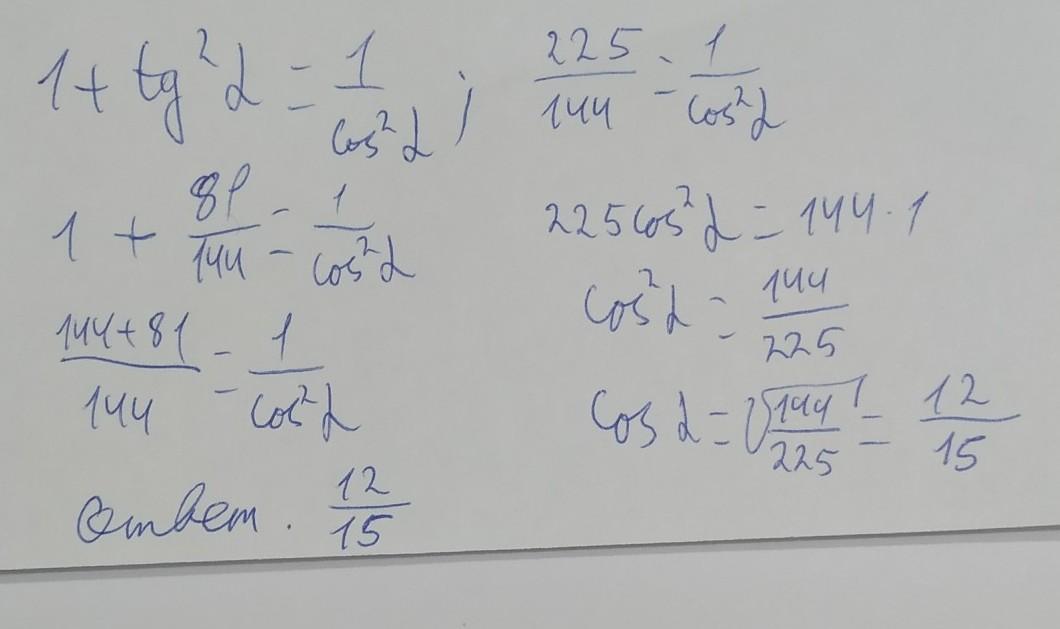 1 + tg²α = 1/cos²α ;
1 + 81/144 = 1/cos²α
(144+81)/144 = 1/cos²α
225/144 = 1/cos²α
225cos²α = 144 · 1
cos²α = 144/225
cos α = √(144/225) = 12/15
Ответ. 12/15